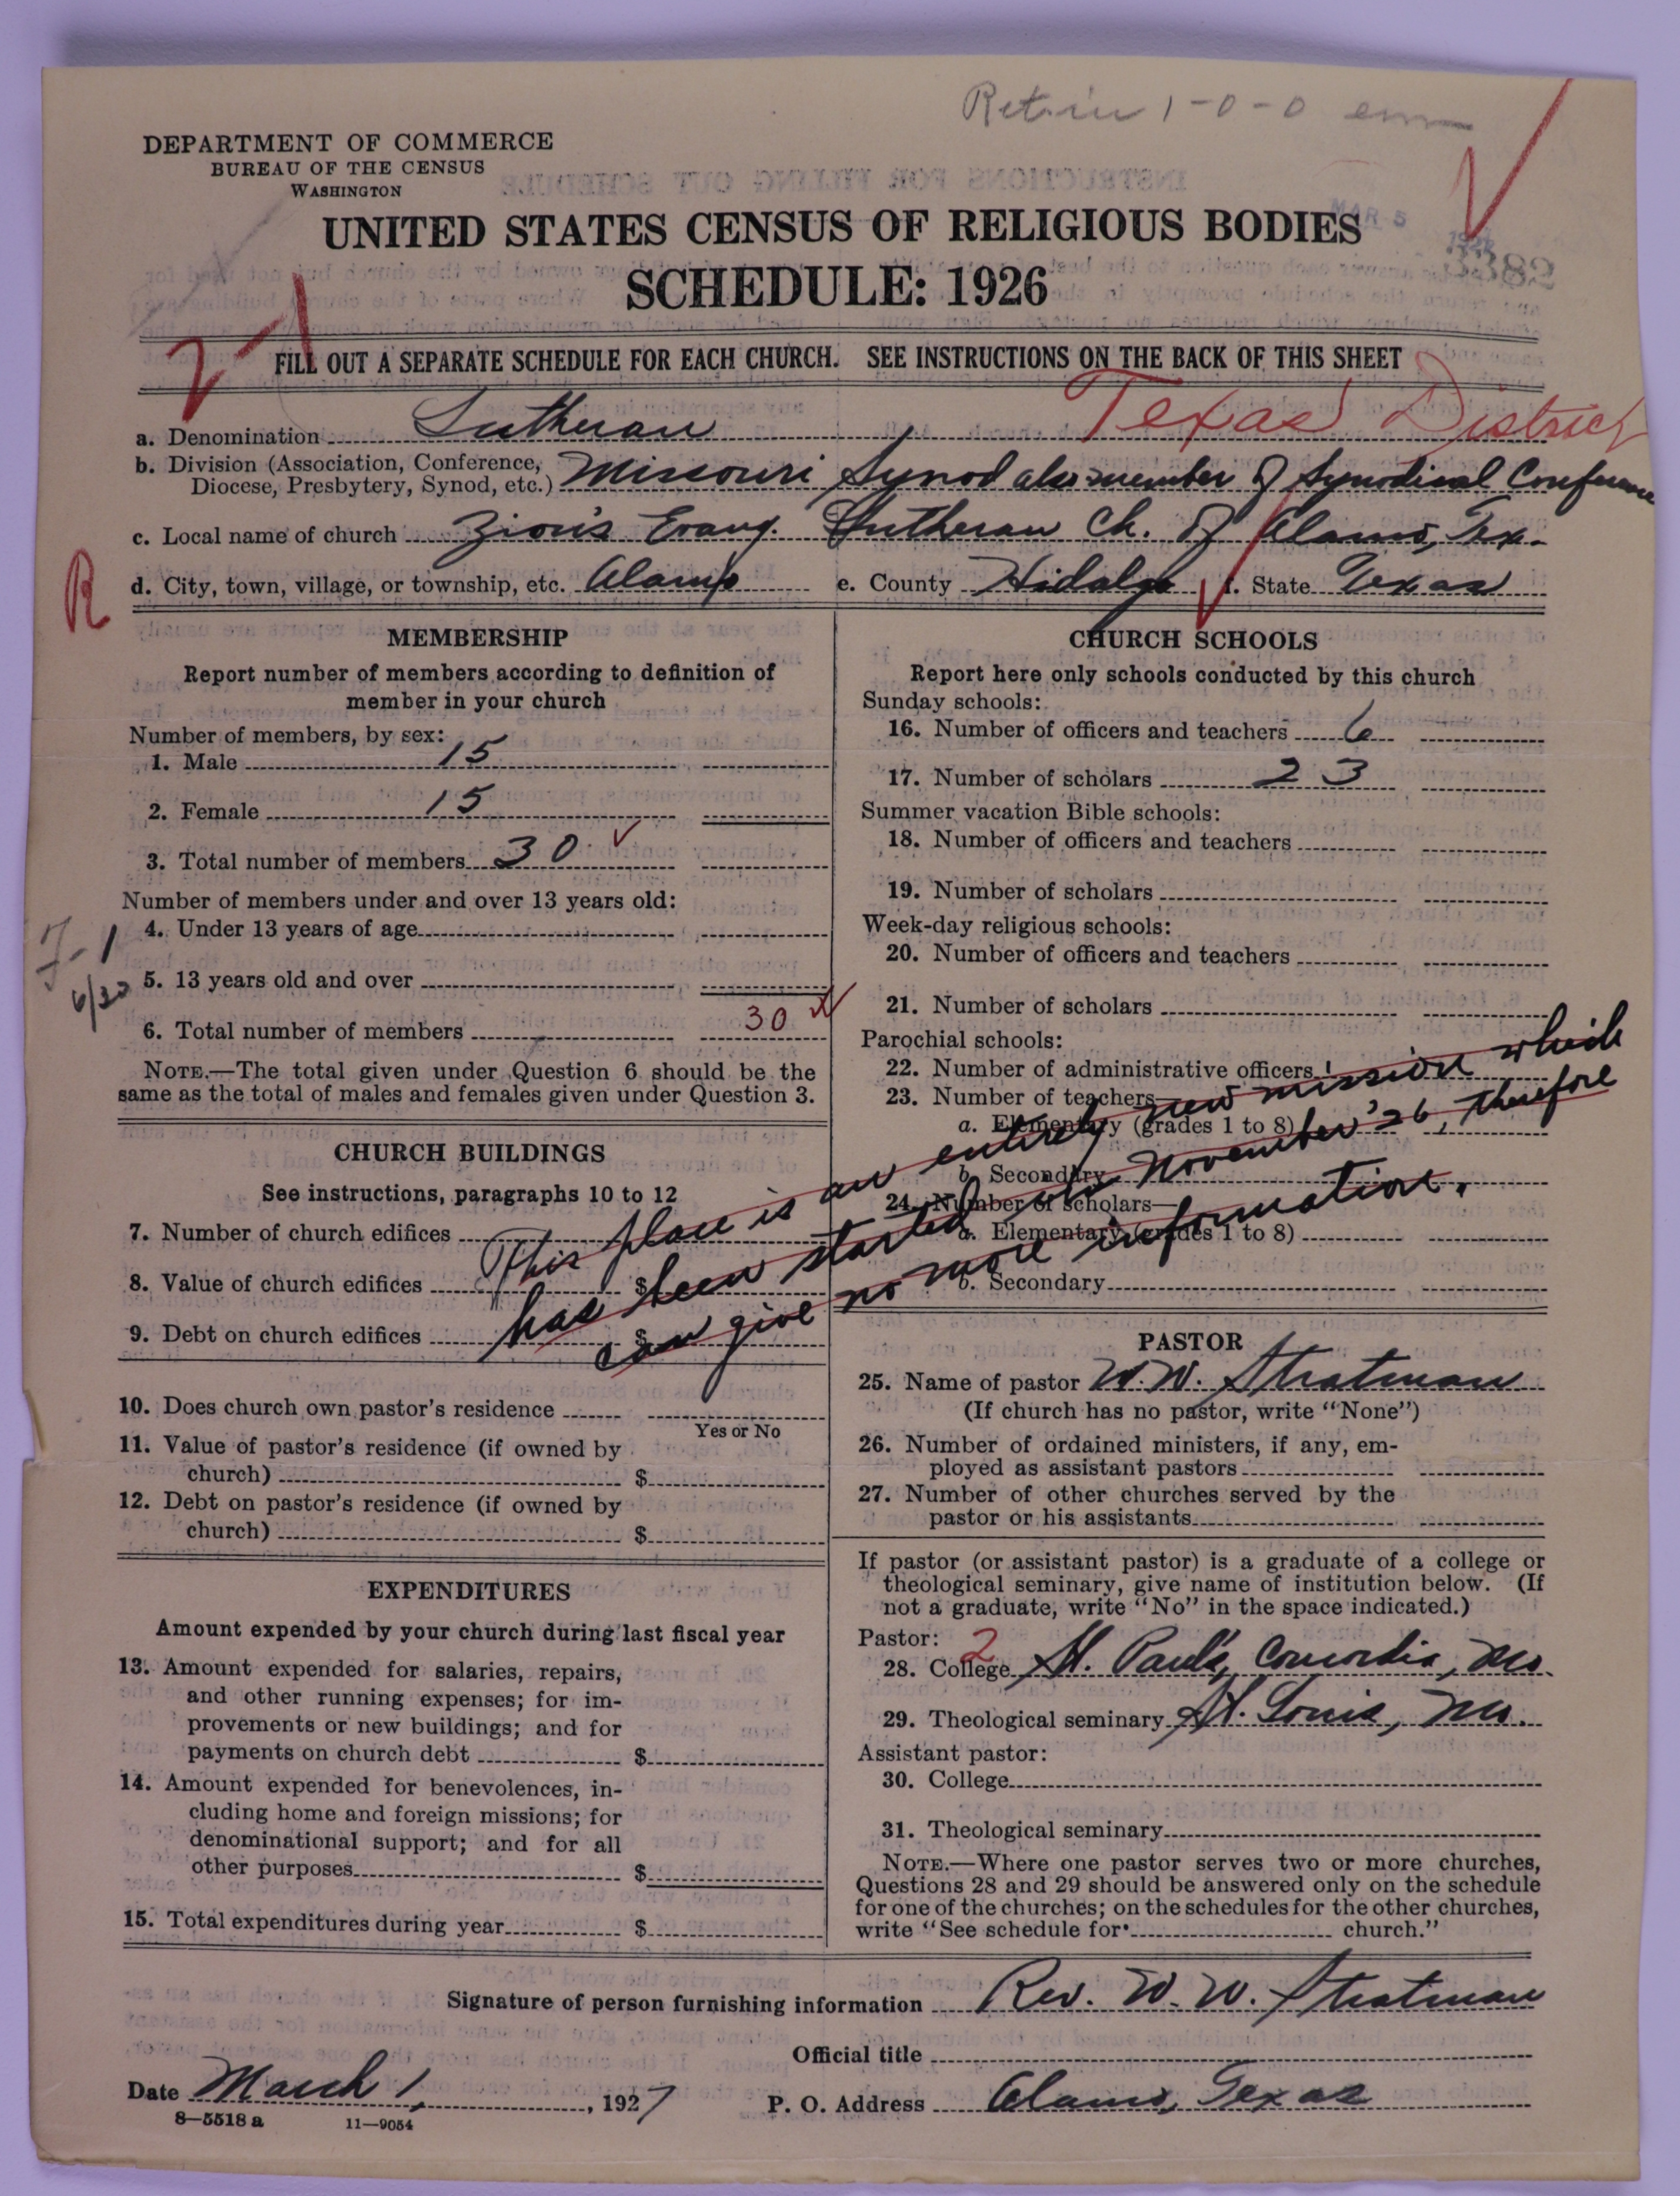 Retain 1-0-0 em
DEPARTMENT OF COMMERCE
BUREAU OF THE CENSUS
WASHINGTON
MAR 5
UNITED STATES CENSUS OF RELIGIOUS BODIES
SCHEDULE: 1926
FILL OUT A SEPARATE SCHEDULE FOR EACH CHURCH. SEE INSTRUCTIONS ON THE BACK OF THIS SHEET
a. Denomination Lutheran Texas District
b. Division (Association, Conference, Diocese, Presbytery, Synod, etc.) Missouri Synod also member of Synodical Conference
c. Local name of church Zion's Evang. Lutheran Ch. of Alamo, Tex.
R
d. City, town, village, or township, etc. Alamo e. County Hidalgo f. State Texas
MEMBERSHIP
Report number of members according to definition of
member in your church
Number of members, by sex:
1. Male 15
2. Female 15
3. Total number of members 30
Number of members under and over 13 years old:
4. Under 13 years of age
5. 13 years old and over
6. Total number of members 30
NOTE.—The total given under Question 6 should be the
same as the total of males and females given under Question 3.
CHURCH BUILDINGS
See instructions, paragraphs 10 to 12
7. Number of church edifices
8. Value of church edifices $
9. Debt on church edifices $
This place is an entirely new mission which
has been started in November '26, therefore
can give no more information.
10. Does church own pastor's residence
Yes or No
11. Value of pastor's residence (if owned by
church) $
12. Debt on pastor's residence (if owned by
church) $
EXPENDITURES
Amount expended by your church during last fiscal year
13. Amount expended for salaries, repairs,
and other running expenses; for im-
provements or new buildings; and for
payments on church debt $
14. Amount expended for benevolences, in-
cluding home and foreign missions; for
denominational support; and for all
other purposes $
15. Total expenditures during year $
CHURCH SCHOOLS
Report here only schools conducted by this church
Sunday schools:
16. Number of officers and teachers 6
17. Number of scholars 23
Summer vacation Bible schools:
18. Number of officers and teachers
19. Number of scholars
Week-day religious schools:
20. Number of officers and teachers
21. Number of scholars
Parochial schools:
22. Number of administrative officers
23. Number of teachers—
a. Elementary (grades 1 to 8)
b. Secondary
24. Number of scholars—
a. Elementary (grades 1 to 8)
b. Secondary
PASTOR
25. Name of pastor W. W. Stratman
(If church has no pastor, write "None")
26. Number of ordained ministers, if any, em-
ployed as assistant pastors
27. Number of other churches served by the
pastor or his assistants
If pastor (or assistant pastor) is a graduate of a college or
theological seminary, give name of institution below. (If
not a graduate, write "No" in the space indicated.)
Pastor: 2
28. College St. Paul's, Concordia, Mo.
29. Theological seminary St. Louis, Mo.
Assistant pastor:
30. College
31. Theological seminary
NOTE.—Where one pastor serves two or more churches,
Questions 28 and 29 should be answered only on the schedule
for one of the churches; on the schedules for the other churches,
write "See schedule for church."
Signature of person furnishing information Rev. W. W. Stratman
Official title
Date March 1, 1927 P. O. Address Alamo, Texas
8—5518 a 11—9054